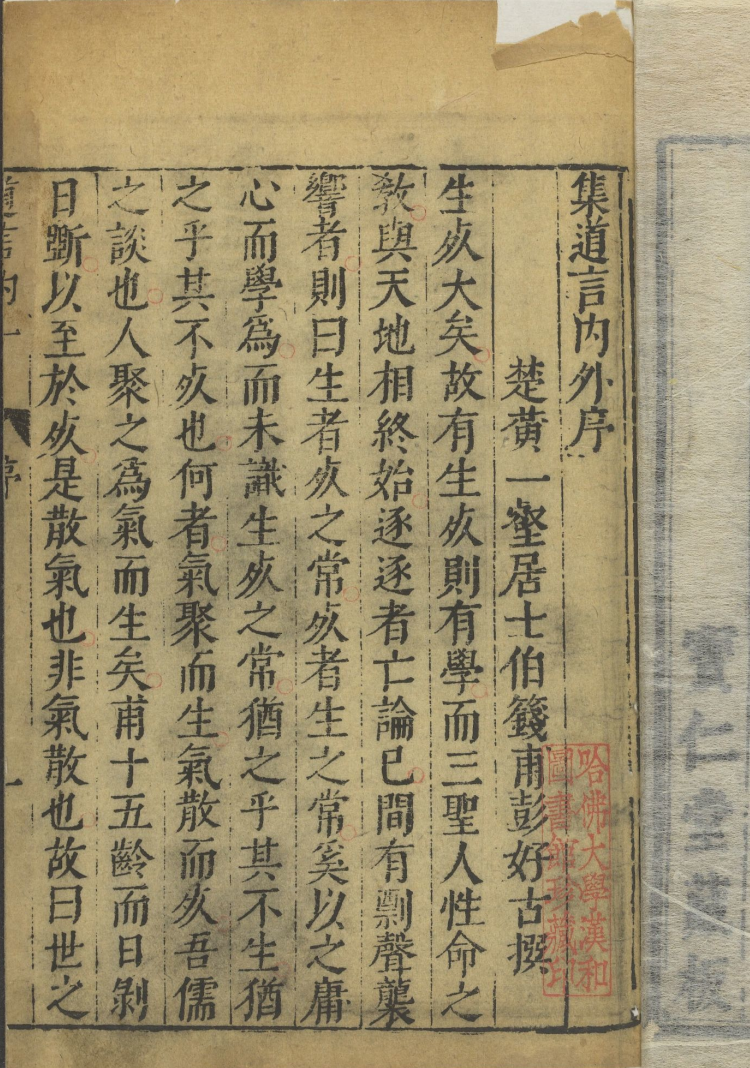 集道言内外序
楚黄一壑居士伯籛甫彭好古撰
生死大矣故有生死則有學而三聖人性命之
教與天地相終始逐逐者亡論已間有剽聲襲
響者則曰生者死之常死者生之常奚以之庸
心而學爲而未識生死之常猶之乎其不生猶
之乎其不死也何者氣聚而生氣散而死吾儒
之談也人聚之爲氣而生矣甫十五齡而日剝
日斲以至於死是散氣也非氣散也故曰世之
道言内一
序
一
哈佛大學漢和
圖書館珍藏印
寶仁堂藏板